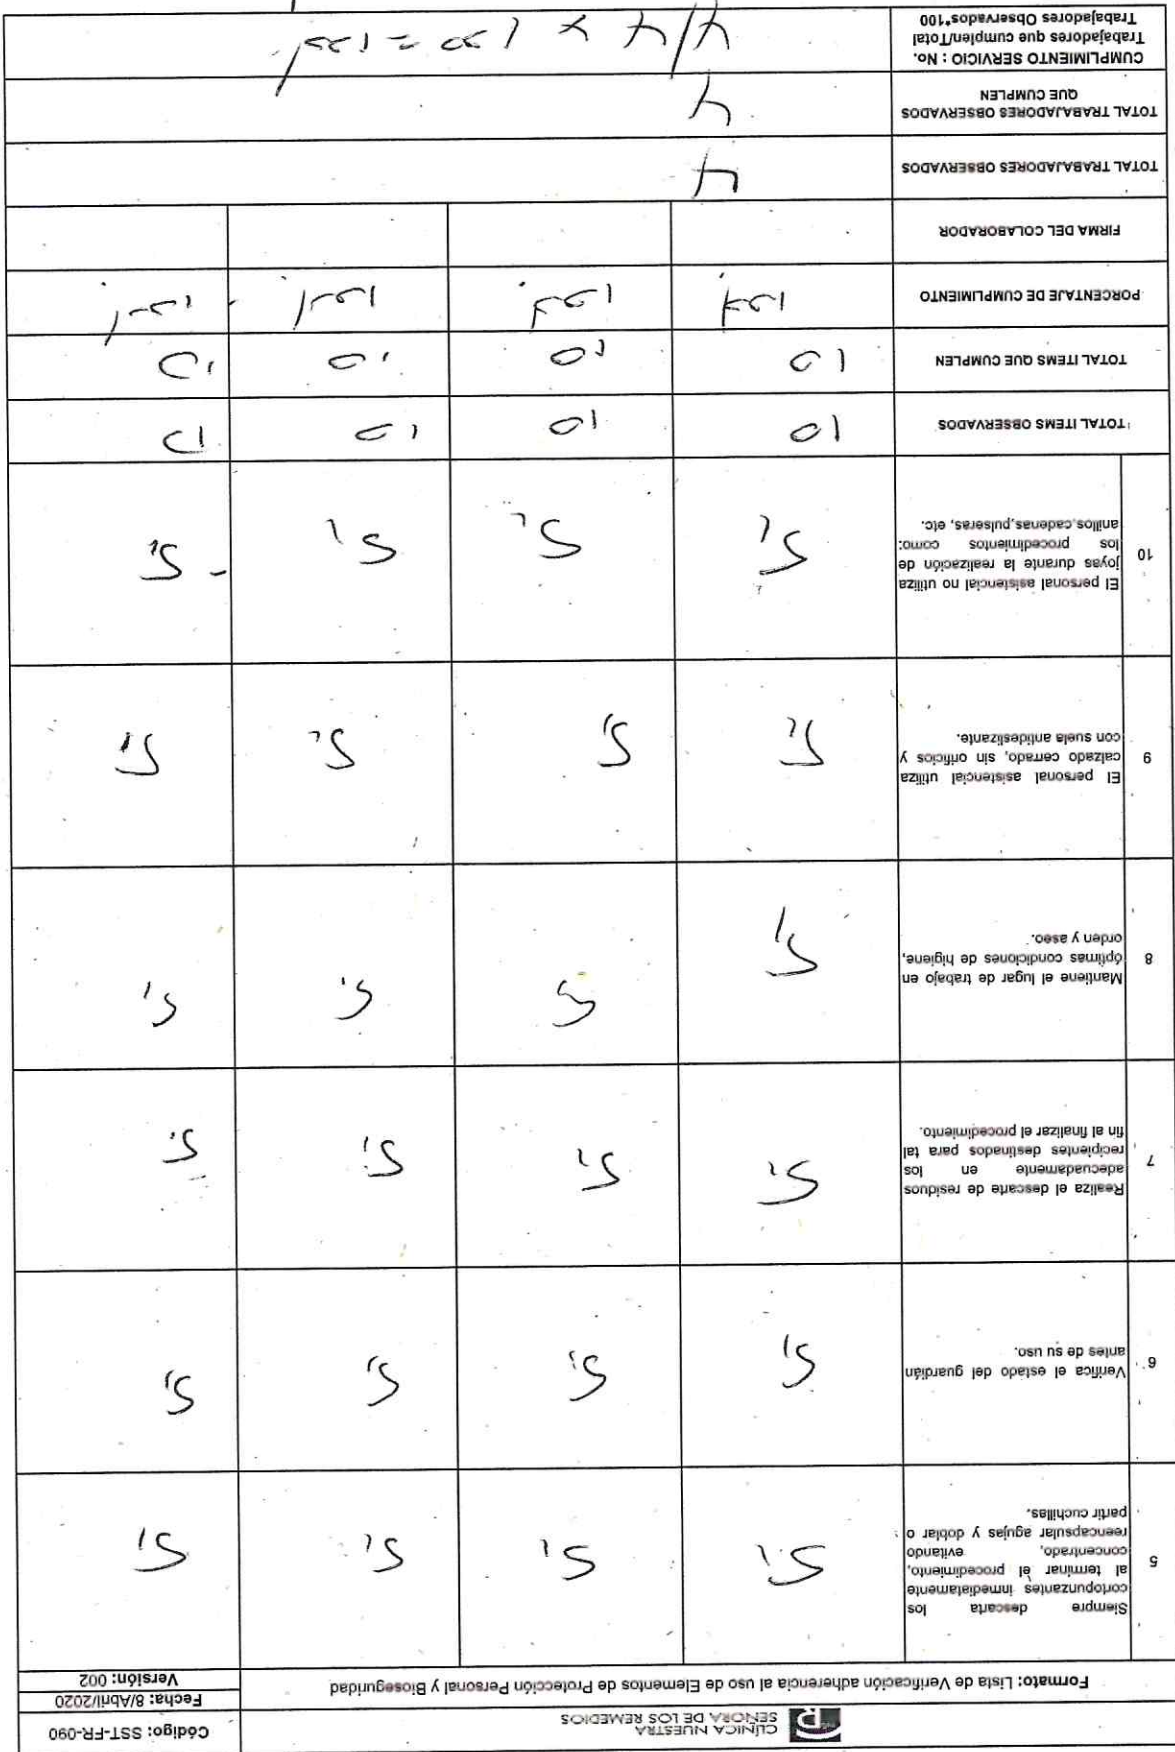 CLÍNICA NUESTRA
SEÑORA DE LOS REMEDIOS
Código: SST-FR-090
Formato: Lista de Verificación adherencia al uso de Elementos de Protección Personal y Bioseguridad
Fecha: 8/Abril/2020
Versión: 002
5
Siempre descarta los
cortopunzantes inmediatamente
al terminar el procedimiento,
concentrado, evitando
reencapsular agujas y doblar o
partir cuchillas.
Si Si Si Si
6
Verifica el estado del guardián
antes de su uso.
Si Si Si Si
7
Realiza el descarte de residuos
adecuadamente en los
recipientes destinados para tal
fin al finalizar el procedimiento.
Si Si Si Si
8
Mantiene el lugar de trabajo en
óptimas condiciones de higiene,
orden y aseo.
Si Si Si Si
9
El personal asistencial utiliza
calzado cerrado, sin orificios y
con suela antideslizante.
Si Si Si Si
10
El personal asistencial no utiliza
joyas durante la realización de
los procedimientos como:
anillos, cadenas, pulseras, etc.
Si Si Si Si
TOTAL ITEMS OBSERVADOS
10 10 10 10
TOTAL ITEMS QUE CUMPLEN
10 10 10 10
PORCENTAJE DE CUMPLIMIENTO
100% 100% 100% 100%
FIRMA DEL COLABORADOR
TOTAL TRABAJADORES OBSERVADOS
4
TOTAL TRABAJADORES OBSERVADOS
QUE CUMPLEN
4
CUMPLIMIENTO SERVICIO : No.
Trabajadores que cumplen/Total
Trabajadores Observados*100
4/4 x 100 = 100%